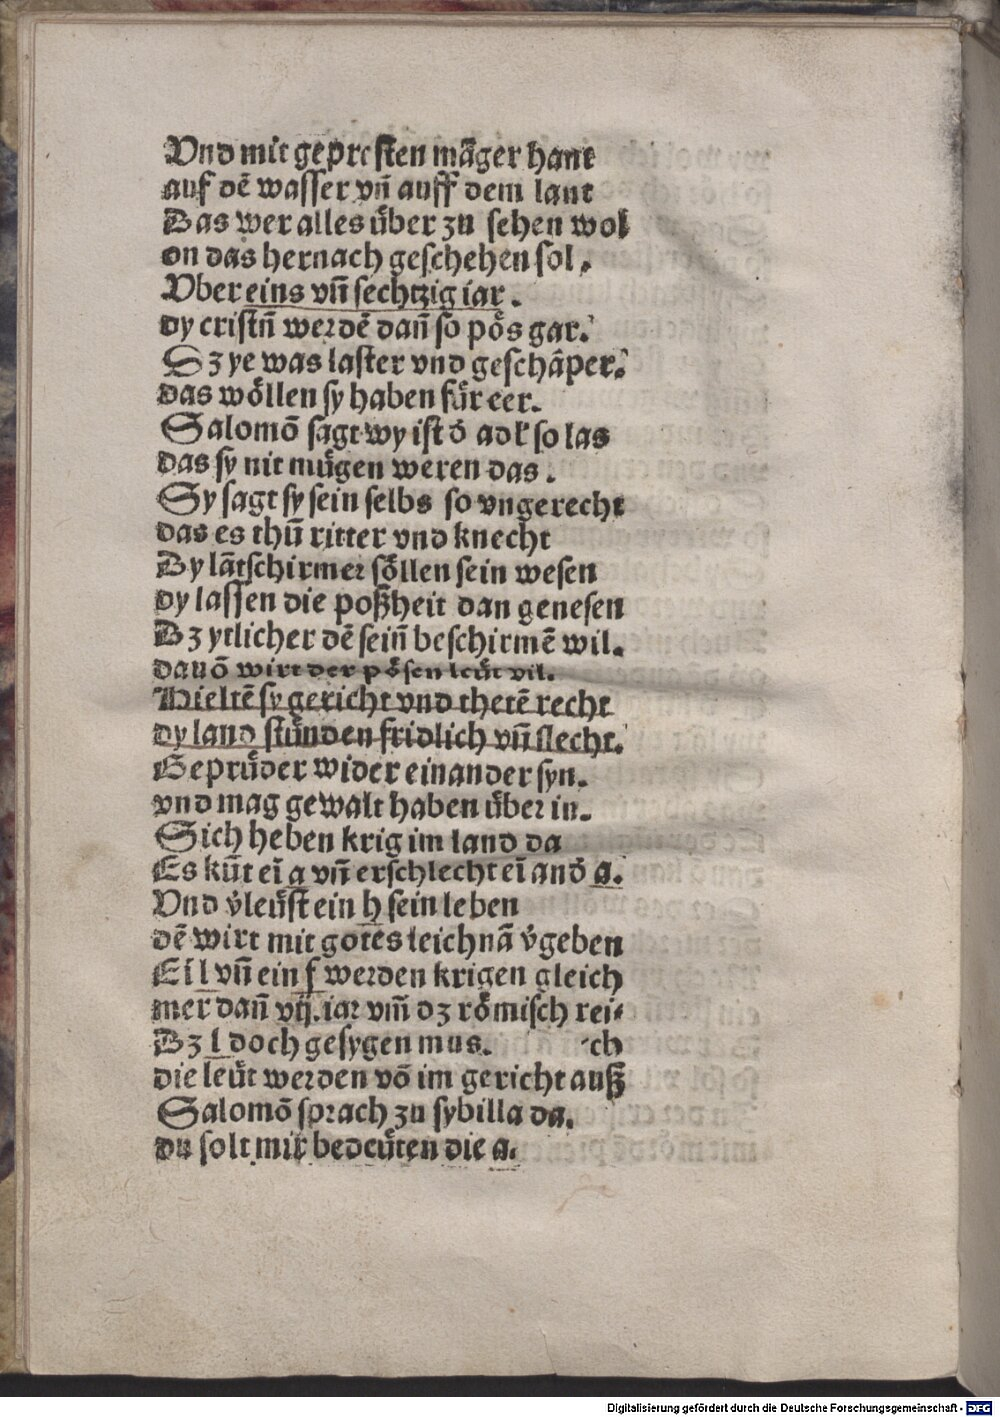 Vnd mit gepresten mãger hant
auf dẽ wasser vñ auff dem lant
Das wer alles uͤber zu sehen wol
on das hernach geschehen sol.
Vber eins vñ sechtzig iar.
dy cristñ werdẽ dañ so poͤs gar.
Dz ye was laster vnd geschãper.
das woͤllen sy haben fuͤr eer.
Salomõ sagt wy ist d̄ adl̛ so las
das sy nit muͤgen weren das.
Sy sagt sy sein selbs so vngerecht
das es thuͤ ritter vnd knecht
Dy lãtschirmer soͤllen sein wesen
dy lassen die poßheit dan genesen
Dz ytlicher dẽ seiñ beschirmẽ wil.
dauõ wirt der poͤsen leuͤt vil.
Hieltẽ sy gericht vnd thetẽ recht
dy land stuͤnden fridlich vñ slecht.
Gepruͤder wider einander syn.
vnd mag gewalt haben uͤber in.
Sich heben krig im land da
Es kuͤt eĩ a vñ erschlecht eĩ and̄ a.
Vnd v̛leuͤst ein h sein leben
dẽ wirt mit gotes leichnã v̛geben
Ei l vñ ein f werden krigen gleich
mer dañ vij. iar vm̃ dz roͤmisch rei⸗
Dz l doch gesygen mus. ch
die leuͤt werden võ im gericht auß
Salomõ sprach zu sybilla da.
du solt mir bedeuͤten die a.
Digitalisierung gefördert durch die Deutsche Forschungsgemeinschaft - DFG